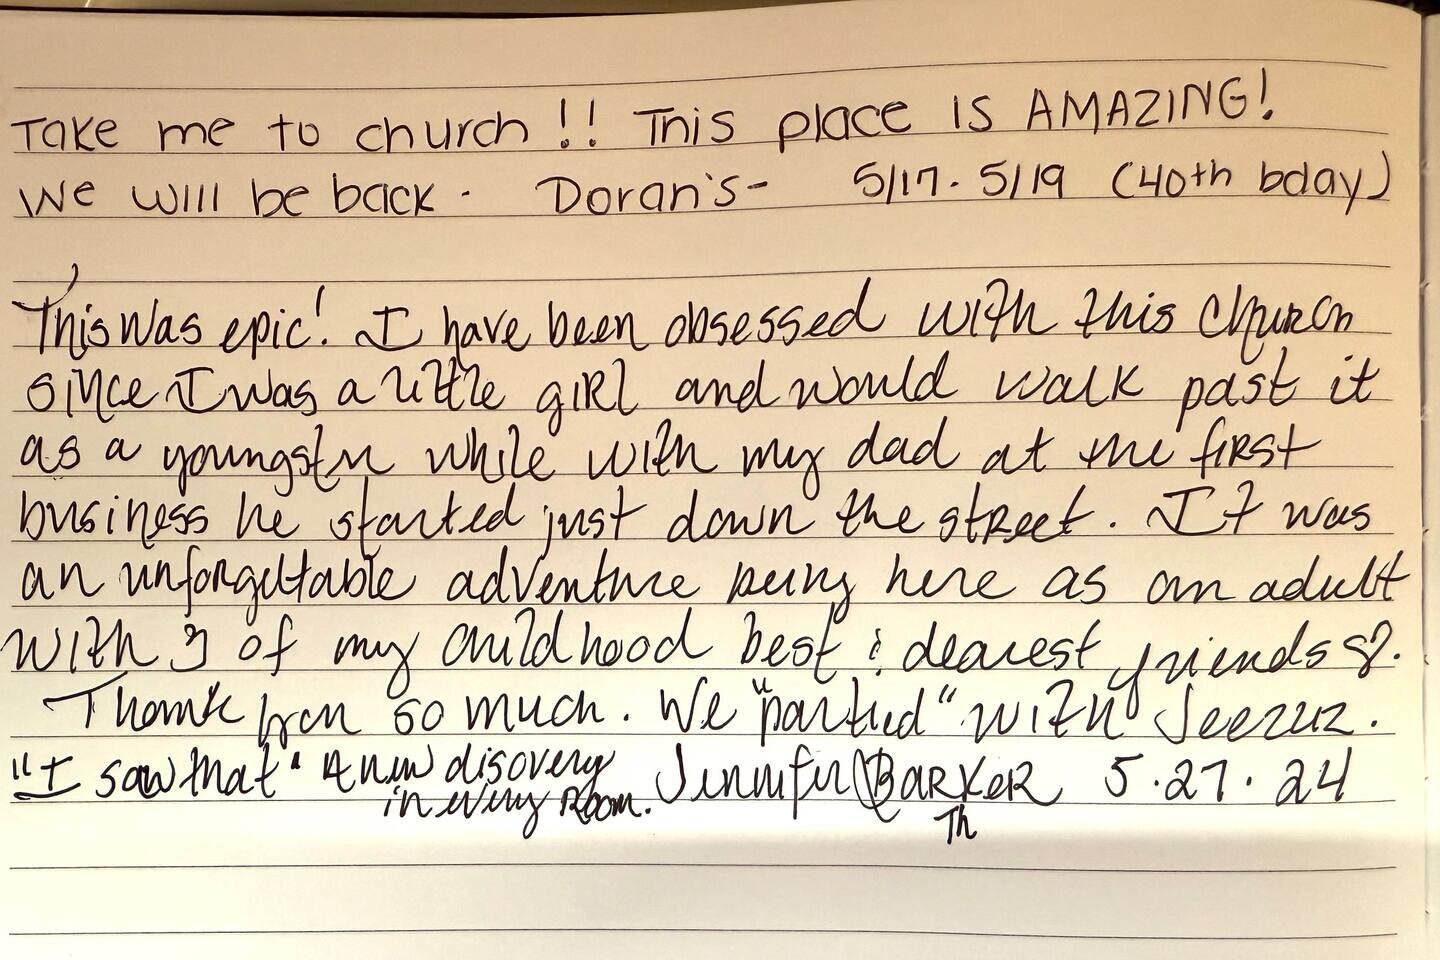 Take me to church!! This place is AMAZING!
We will be back - Doran's - 5/17 - 5/19 (40th bday)
This was epic! I have been obsessed with this church
since I was a little girl and would walk past it
as a youngster while with my dad at the first
business he started just down the street. It was
an unforgettable adventure being here as an adult
with 3 of my childhood best & dearest friends.
Thank you so much. We "partied" with Jeezuz.
"I saw that" A new discovery Jennifer Barker 5.27.24
in every room.
Th